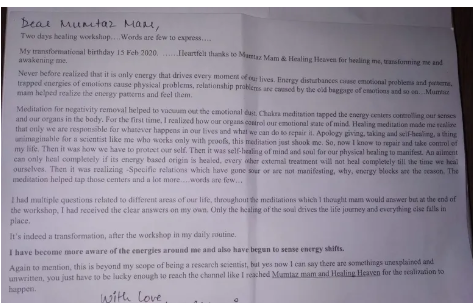 Dear Mumtaz Mam,
Two days healing workshop....Words are few to express....
My transformational birthday 15 Feb 2020. ......Heartfelt thanks to Mumtaz Mam & Healing Heaven for healing me, transforming me and
awakening me.
Never before realized that it is only energy that drives every moment of our lives. Energy disturbances cause emotional problems and patterns,
trapped energies of emotions cause physical problems, relationship problems are caused by the old baggage of emotions and so on...Mumtaz
mam helped realize the energy patterns and feel them.
Meditation for negativity removal helped to vacuum out the emotional dust, Chakra meditation tapped the energy centers controlling our senses
and our organs in the body. For the first time, I realized how our organs control our emotional state of mind. Healing meditation made me realize
that only we are responsible for whatever happens in our lives and what we can do to repair it. Apology giving, taking and self-healing, a thing
unimaginable for a scientist like me who works only with proofs, this meditation just shook me. So, now I know to repair and take control of
my life. Then it was how we have to protect our self. Then it was self-healing of mind and soul for our physical healing to manifest. An ailment
can only heal completely if its energy based origin is healed, every other external treatment will not heal completely till the time we heal
ourselves. Then it was realizing -Specific relations which have gone sour or are not manifesting, why, energy blocks are the reason. This
meditation helped tap those centers and a lot more... words are few...
I had multiple questions related to different areas of our life, throughout the meditations which I thought mam would answer but at the end of
the workshop, I had received the clear answers on my own. Only the healing of the soul drives the life journey and everything else falls in
place.
It's indeed a transformation, after the workshop in my daily routine.
I have become more aware of the energies around me and also have begun to sense energy shifts.
Again to mention, this is beyond my scope of being a research scientist, but yes now I can say there are somethings unexplained and
unwritten, you just have to be lucky enough to reach the channel like I reached Mumtaz mam and Healing Heaven for the realization to
happen.
With Love,